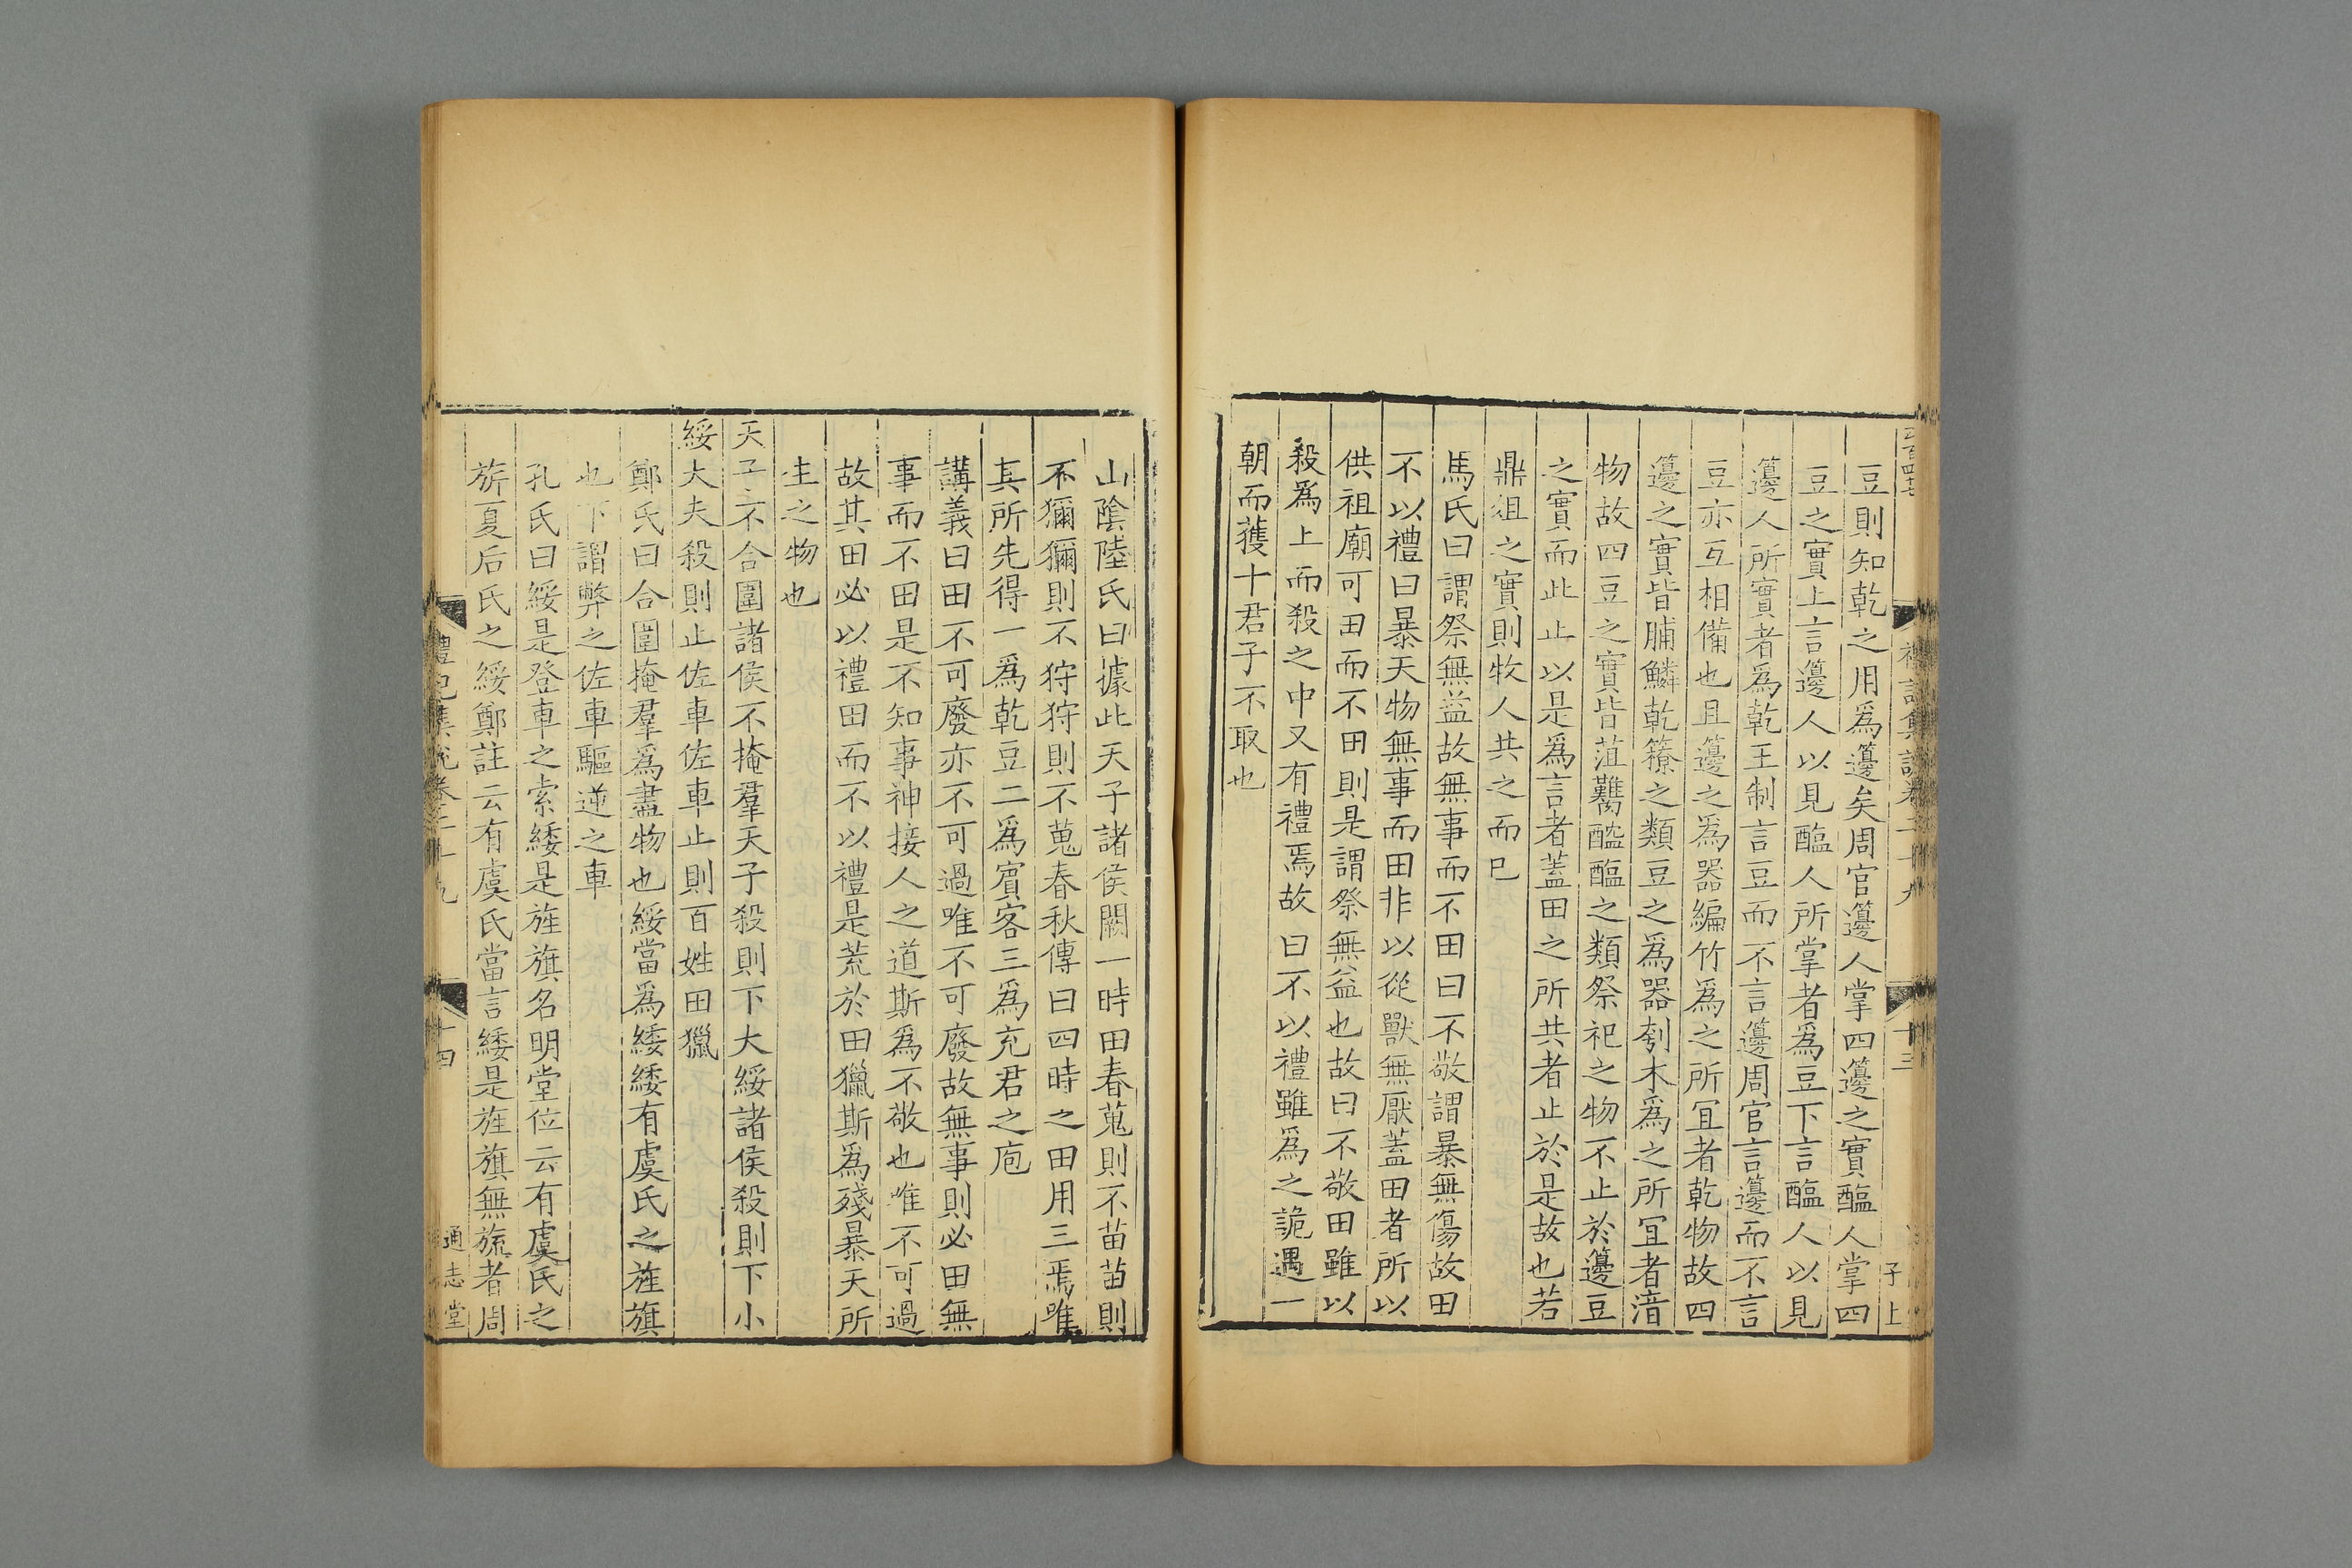 豆則知乾之用爲籩矣周官籩人掌四籩之實醢人掌四
豆之實上言籩人以見醢人所掌者爲豆下言醢人以見
籩人所實者爲乾王制言豆而不言籩周官言籩而不言
豆亦互相備也且籩之爲器編竹爲之所宜者乾物故四
籩之實皆脯鱐乾䕩之類豆之爲器刳木爲之所宜者湆
物故四豆之實皆菹臡醓醢之類祭祀之物不止於籩豆
之實而此止以是爲言者蓋田之所共者止於是故也若
鼎俎之實則牧人共之而已
馬氏曰謂祭無益故無事而不田曰不敬謂暴無傷故田
不以禮曰暴天物無事而田非以從獸無厭蓋田者所以
供祖廟可田而不田則是謂祭無益也故曰不敬田雖以
殺爲上而殺之中又有禮焉故曰不以禮雖爲之詭遇一
朝而獲十君子不取也
禮記集說卷二十九
十三
子上
山陰陸氏曰據此天子諸侯闕一時田春蒐則不苗苗則
不獮獮則不狩狩則不蒐春秋傳曰四時之田用三焉唯
其所先得一爲乾豆二爲賓客三爲充君之庖
講義曰田不可廢亦不可過唯不可廢故無事則必田無
事而不田是不知事神接人之道斯爲不敬也唯不可過
故其田必以禮田而不以禮是荒於田獵斯爲殘暴天所
生之物也
天子不合圍諸侯不掩羣天子殺則下大綏諸侯殺則下小
綏大夫殺則止佐車佐車止則百姓田獵
鄭氏曰合圍掩羣爲盡物也綏當爲緌緌有虞氏之旌旗
也下謂弊之佐車驅逆之車
孔氏曰綏是登車之索緌是旌旗名明堂位云有虞氏之
旂夏后氏之綏鄭註云有虞氏當言緌是旌旗無旒者周
禮記集說卷二十九
十四
通志堂